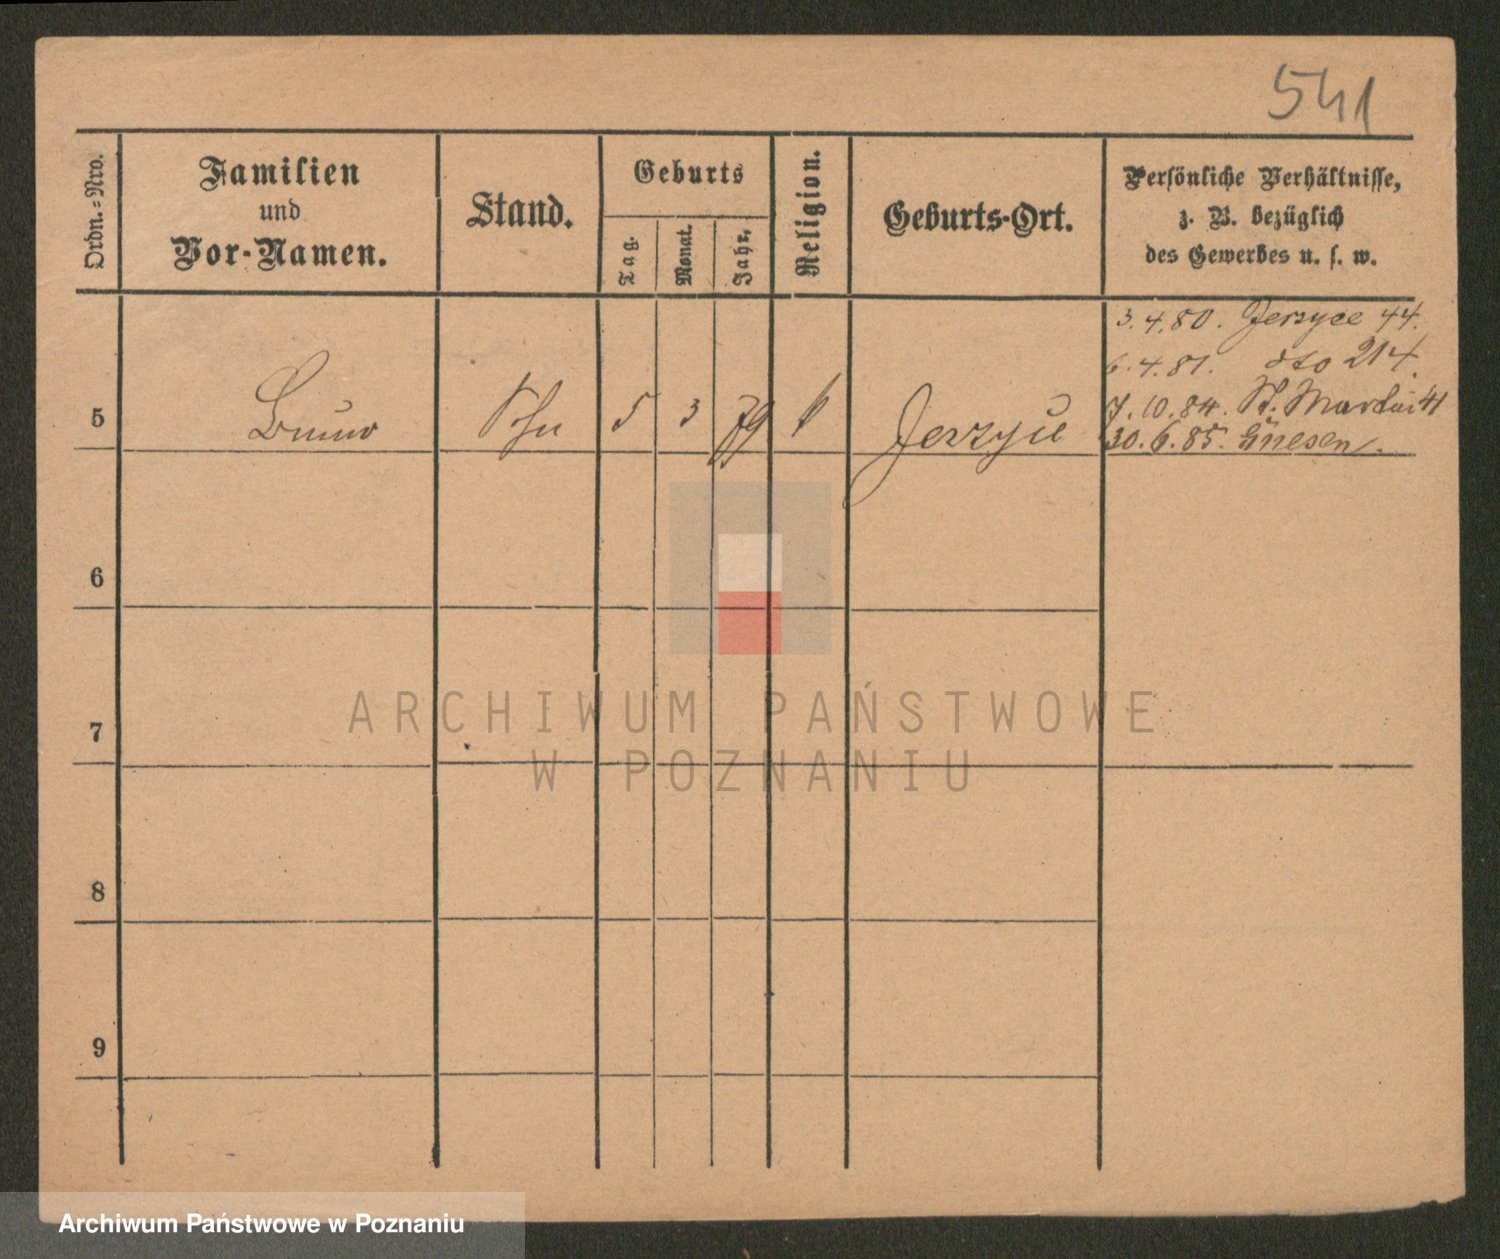 541
Ordn.=Nro.
Familien
und
Vor-Namen.
Stand.
Geburts
Tag.
Monat.
Jahr.
Religion.
Geburts-Ort.
Persönliche Verhältnisse,
z. B. bezüglich
des Gewerbes u. s. w.
3.4.80. Jerzyce 44.
6.4.81. dto 214.
7.10.84. St. Martin 41
5 Bruno Sohn 5 3 79 k Jerzyce 30.6.85. Gnesen.
6
7
8
9
ARCHIWUM PAŃSTWOWE
W POZNANIU
Archiwum Państwowe w Poznaniu